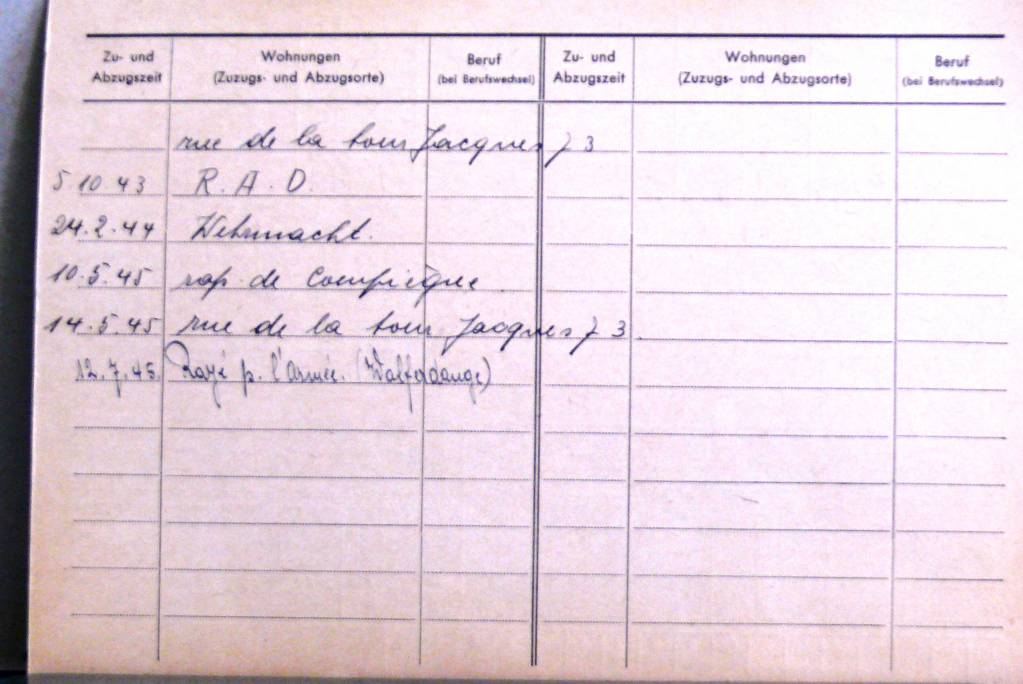 Zu- und Abzugszeit
Wohnungen
(Zuzugs- und Abzugsorte)
Beruf
(bei Berufswechsel)
Zu- und Abzugszeit
Wohnungen
(Zuzugs- und Abzugsorte)
Beruf
(bei Berufswechsel)
rue de la tour Jacques 3
5 10 43 R. A. D.
24.2.44 Wehrmacht.
10.5.45 rap. de Compiègne
14.5.45 rue de la tour Jacques 3.
12.7.45. Rayé p. l'armée. (Walferdange)